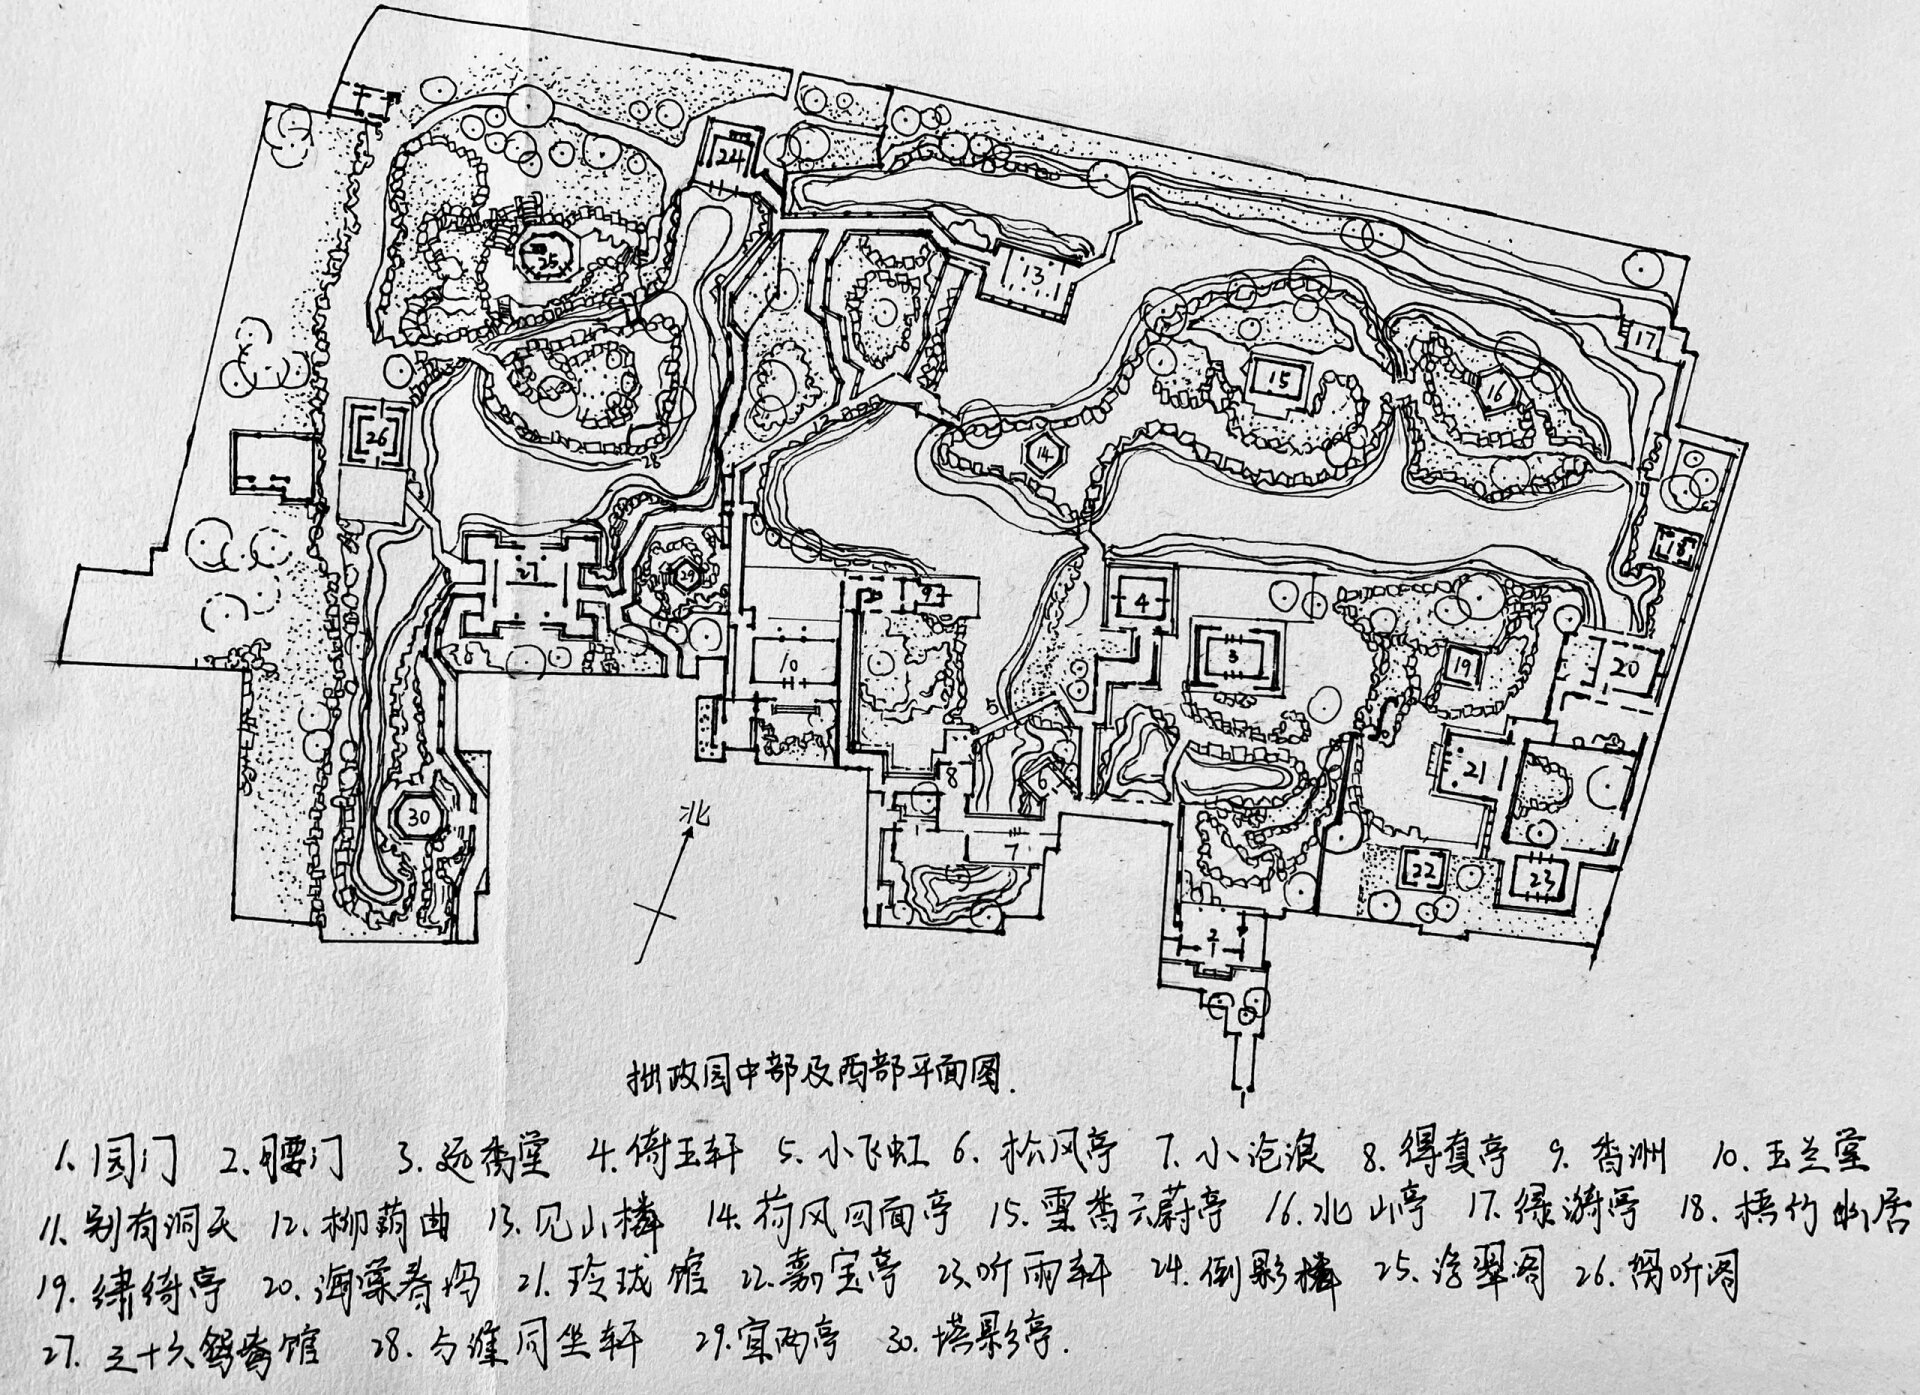 24
25
13
17
15
16
26
12
14
28
18
27
29
9
4
10
3
19
20
5
21
8
6
30
北
7
22
23
2
1
拙政园中部及西部平面图.
1. 园门 2. 腰门 3. 远香堂 4. 倚玉轩 5. 小飞虹 6. 松风亭 7. 小沧浪 8. 得真亭 9. 香洲 10. 玉兰堂
11. 别有洞天 12. 柳荫曲 13. 见山楼 14. 荷风四面亭 15. 雪香云蔚亭 16. 北山亭 17. 绿漪亭 18. 梧竹幽居
19. 绣绮亭 20. 海棠春坞 21. 玲珑馆 22. 嘉宝亭 23. 听雨轩 24. 倒影楼 25. 浮翠阁 26. 留听阁
27. 三十六鸳鸯馆 28. 与谁同坐轩 29. 宜两亭 30. 塔影亭.